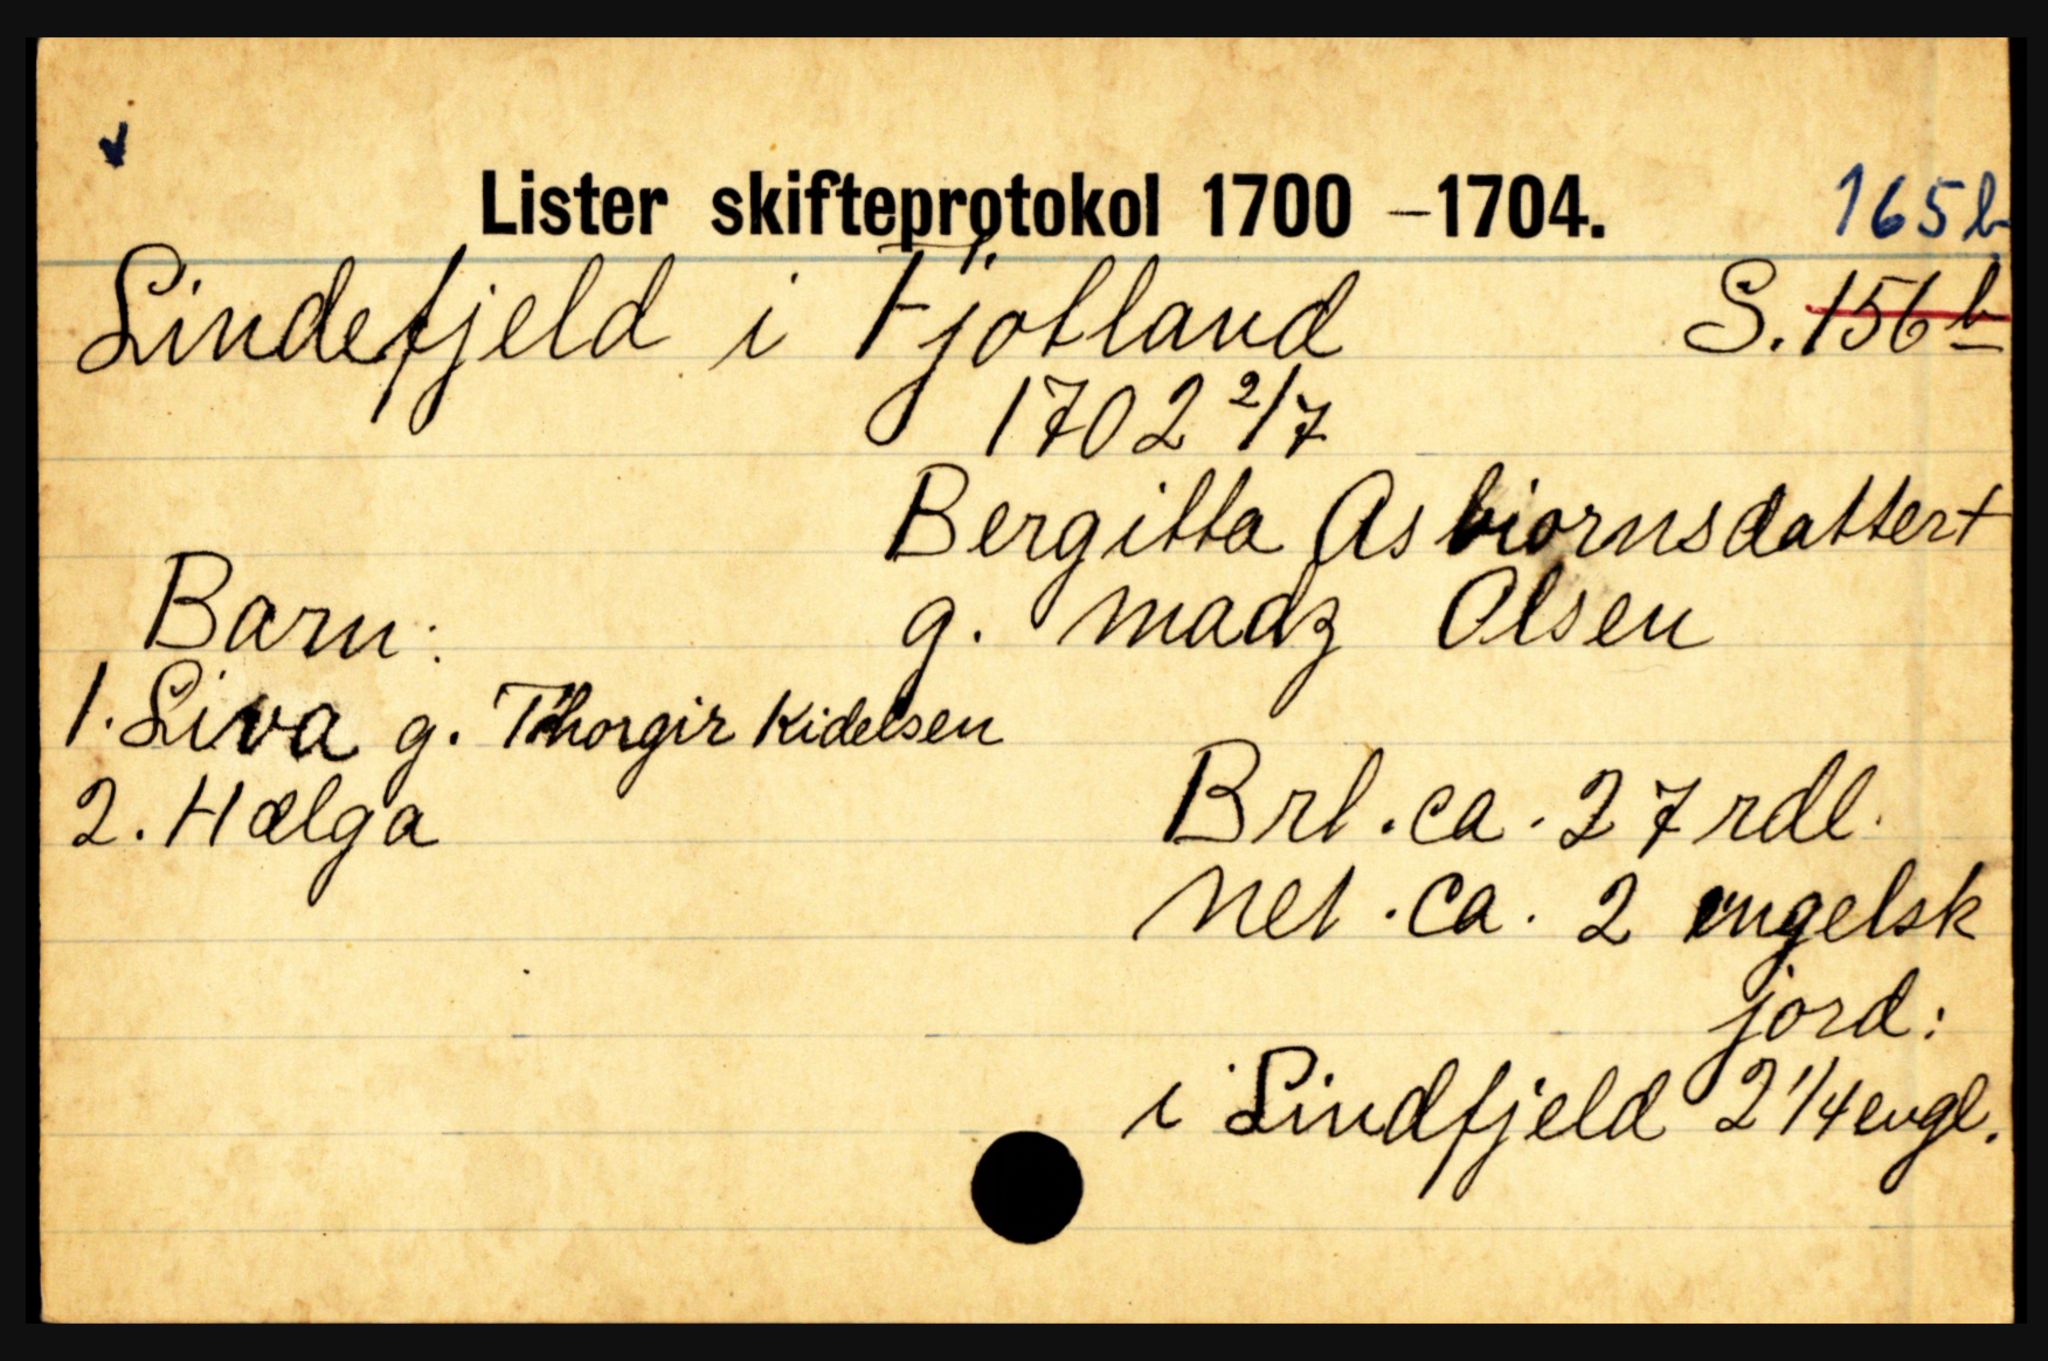 Lister skifteprotokol 1700 – 1704. 165 b
Lindefjeld i Fjotland S. 156 b
1702 2/7
Bergitta Asbiornsdatter †
Barn: g. Madz Olsen
1. Siva g. Thorgir Kidelsen
2. Hælga
Brt. ca. 27 rdl.
Net. ca. 2 engelsk
jord:
i Lindfjeld 2 1/4 engl.